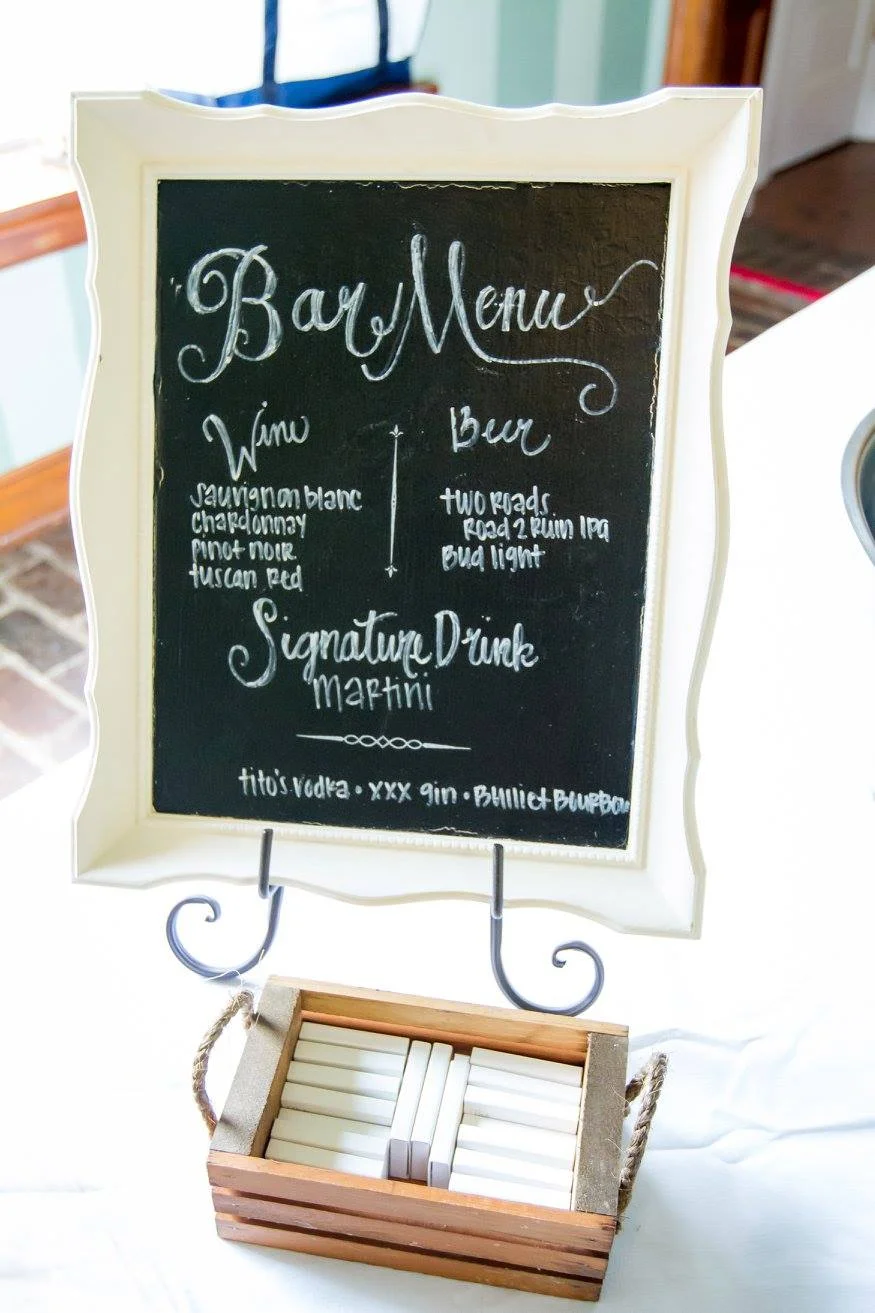 Bar Menu
Wine
sauvignon blanc
chardonnay
pinot noir
tuscan red
Beer
two roads
Road 2 Ruin IPA
Bud light
Signature Drink
martini
tito's vodka • xxx gin • Bulliet Bourbon